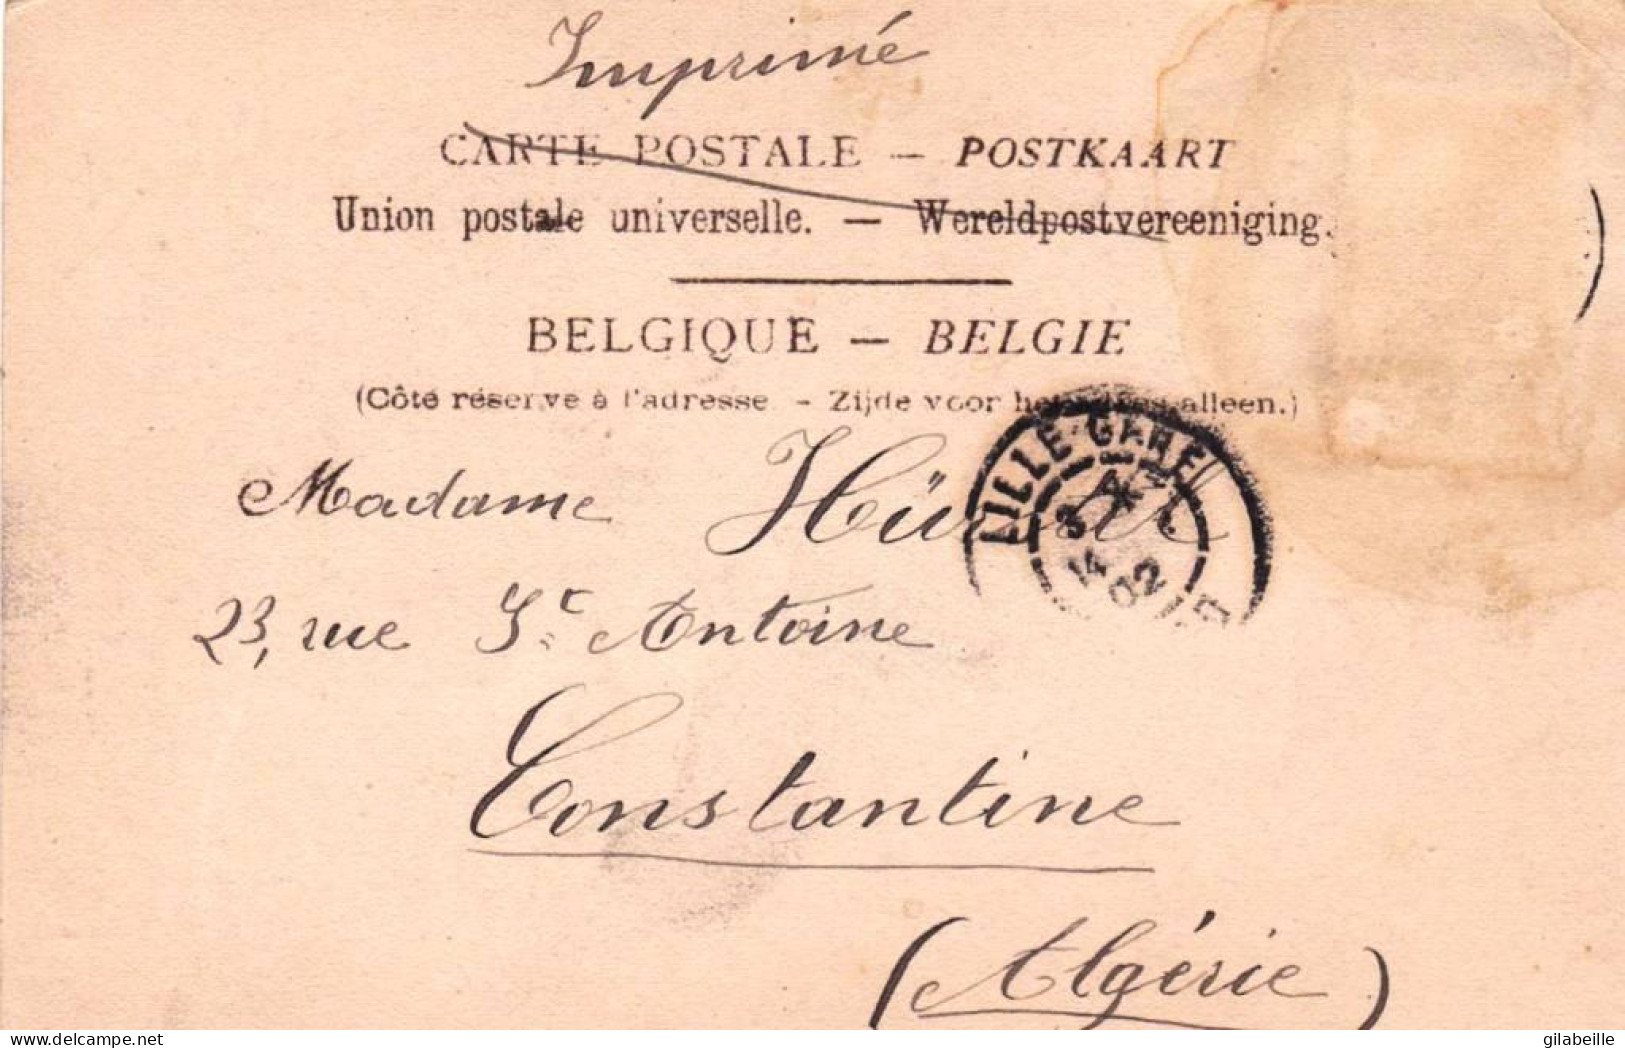 Imprimé
CARTE POSTALE — POSTKAART
Union postale universelle. — Wereldpostvereeniging.
BELGIQUE — BELGIE
(Côté réservé à l'adresse - Zijde voor het adres alleen.)
LILLE-GARE
02
Madame
23, rue St Antoine
Constantine
(Algérie)
gilabeille